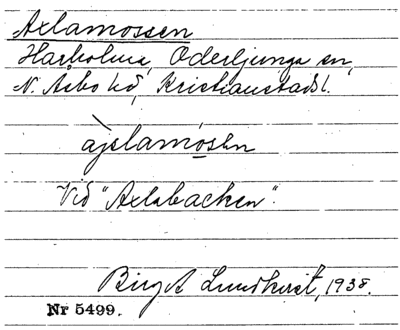 Axlamossen
Harholma, Oderljunga sn,
N. Åsbo hd, Kristianstads l.
àjslamósen
Vid "Axlabacken".
Birgit Lundkvist, 1938.
Nr 5499.